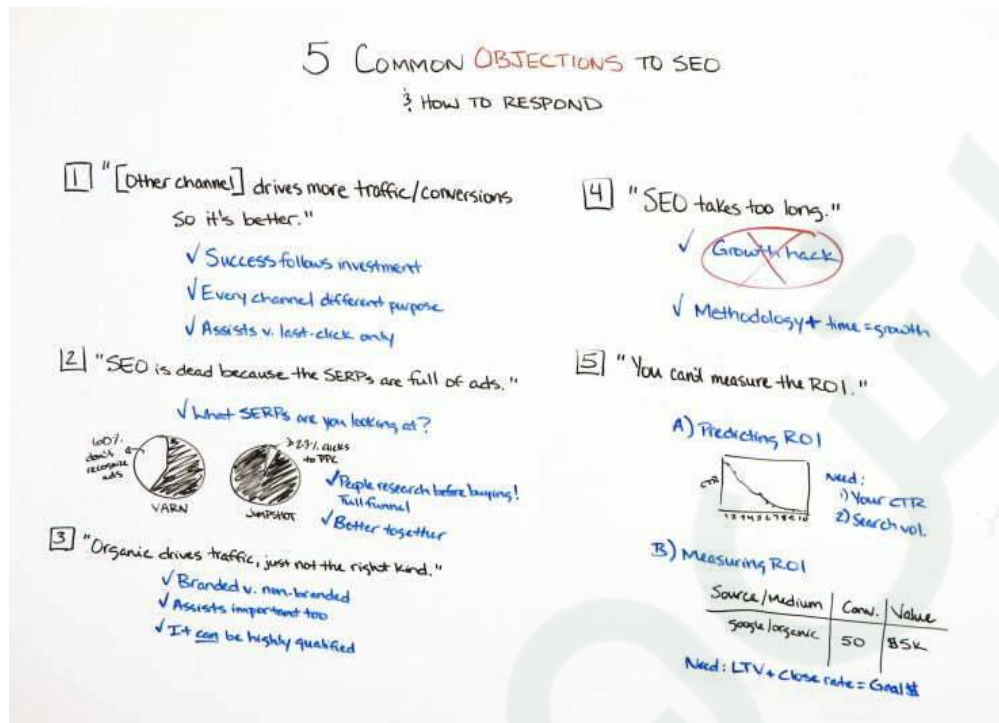 5 COMMON OBJECTIONS TO SEO
& HOW TO RESPOND
1 "[Other channel] drives more traffic/conversions
So it's better."
✓ Success follows investment
✓ Every channel different purpose
✓ Assists v. last-click only
2 "SEO is dead because the SERPs are full of ads."
✓ What SERPs are you looking at?
60%
don't
recognize
ads
VARN
→ 2-3% clicks
to PPC
JUMPSHOT
✓ People research before buying!
Full funnel
✓ Better together
3 "Organic drives traffic, just not the right kind."
✓ Branded v. non-branded
✓ Assists important too
✓ It can be highly qualified
4 "SEO takes too long."
✓ Growth hack
✓ Methodology + time = growth
5 "You can't measure the ROI."
A) Predicting ROI
CTR
1 2 3 4 5 6 7 8 9 10
Need:
1) Your CTR
2) Search vol.
B) Measuring ROI
Source/Medium Conv. Value
google/organic 50 $5K
Need: LTV + Close rate = Goal $